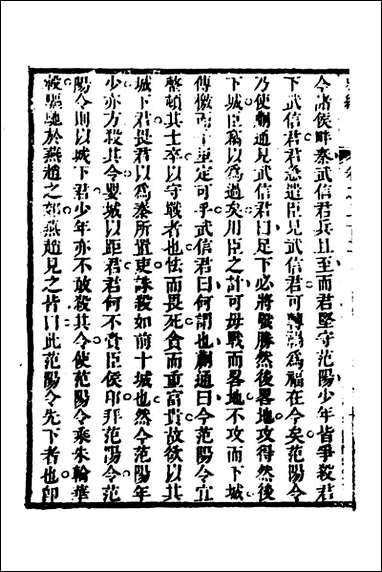 今諸侯畔秦武信君兵且至而君堅守范陽少年皆爭殺君
下武信君君急遣臣見武信君可轉禍為福在今矣范陽令
乃使蒯通見武信君曰足下必將戰勝然後畧地攻得然後
下城臣竊以為過矣用臣之計可毋戰而畧地不攻而下城
傳檄而千里定可乎武信君曰何謂也蒯通曰今范陽令宜
整頓其士卒以守戰者也怯而畏死貪而重富貴故欲以其
城下君畏君以為秦所置吏誅殺如前十城也然今范陽年
少亦方殺其令嬰城以距君君何不賫臣侯印拜范陽令范
陽令則以城下君少年亦不敢殺其令使范陽令乘朱輪華
轂驅馳於燕趙之郊燕趙見之皆曰此范陽令先下者也即